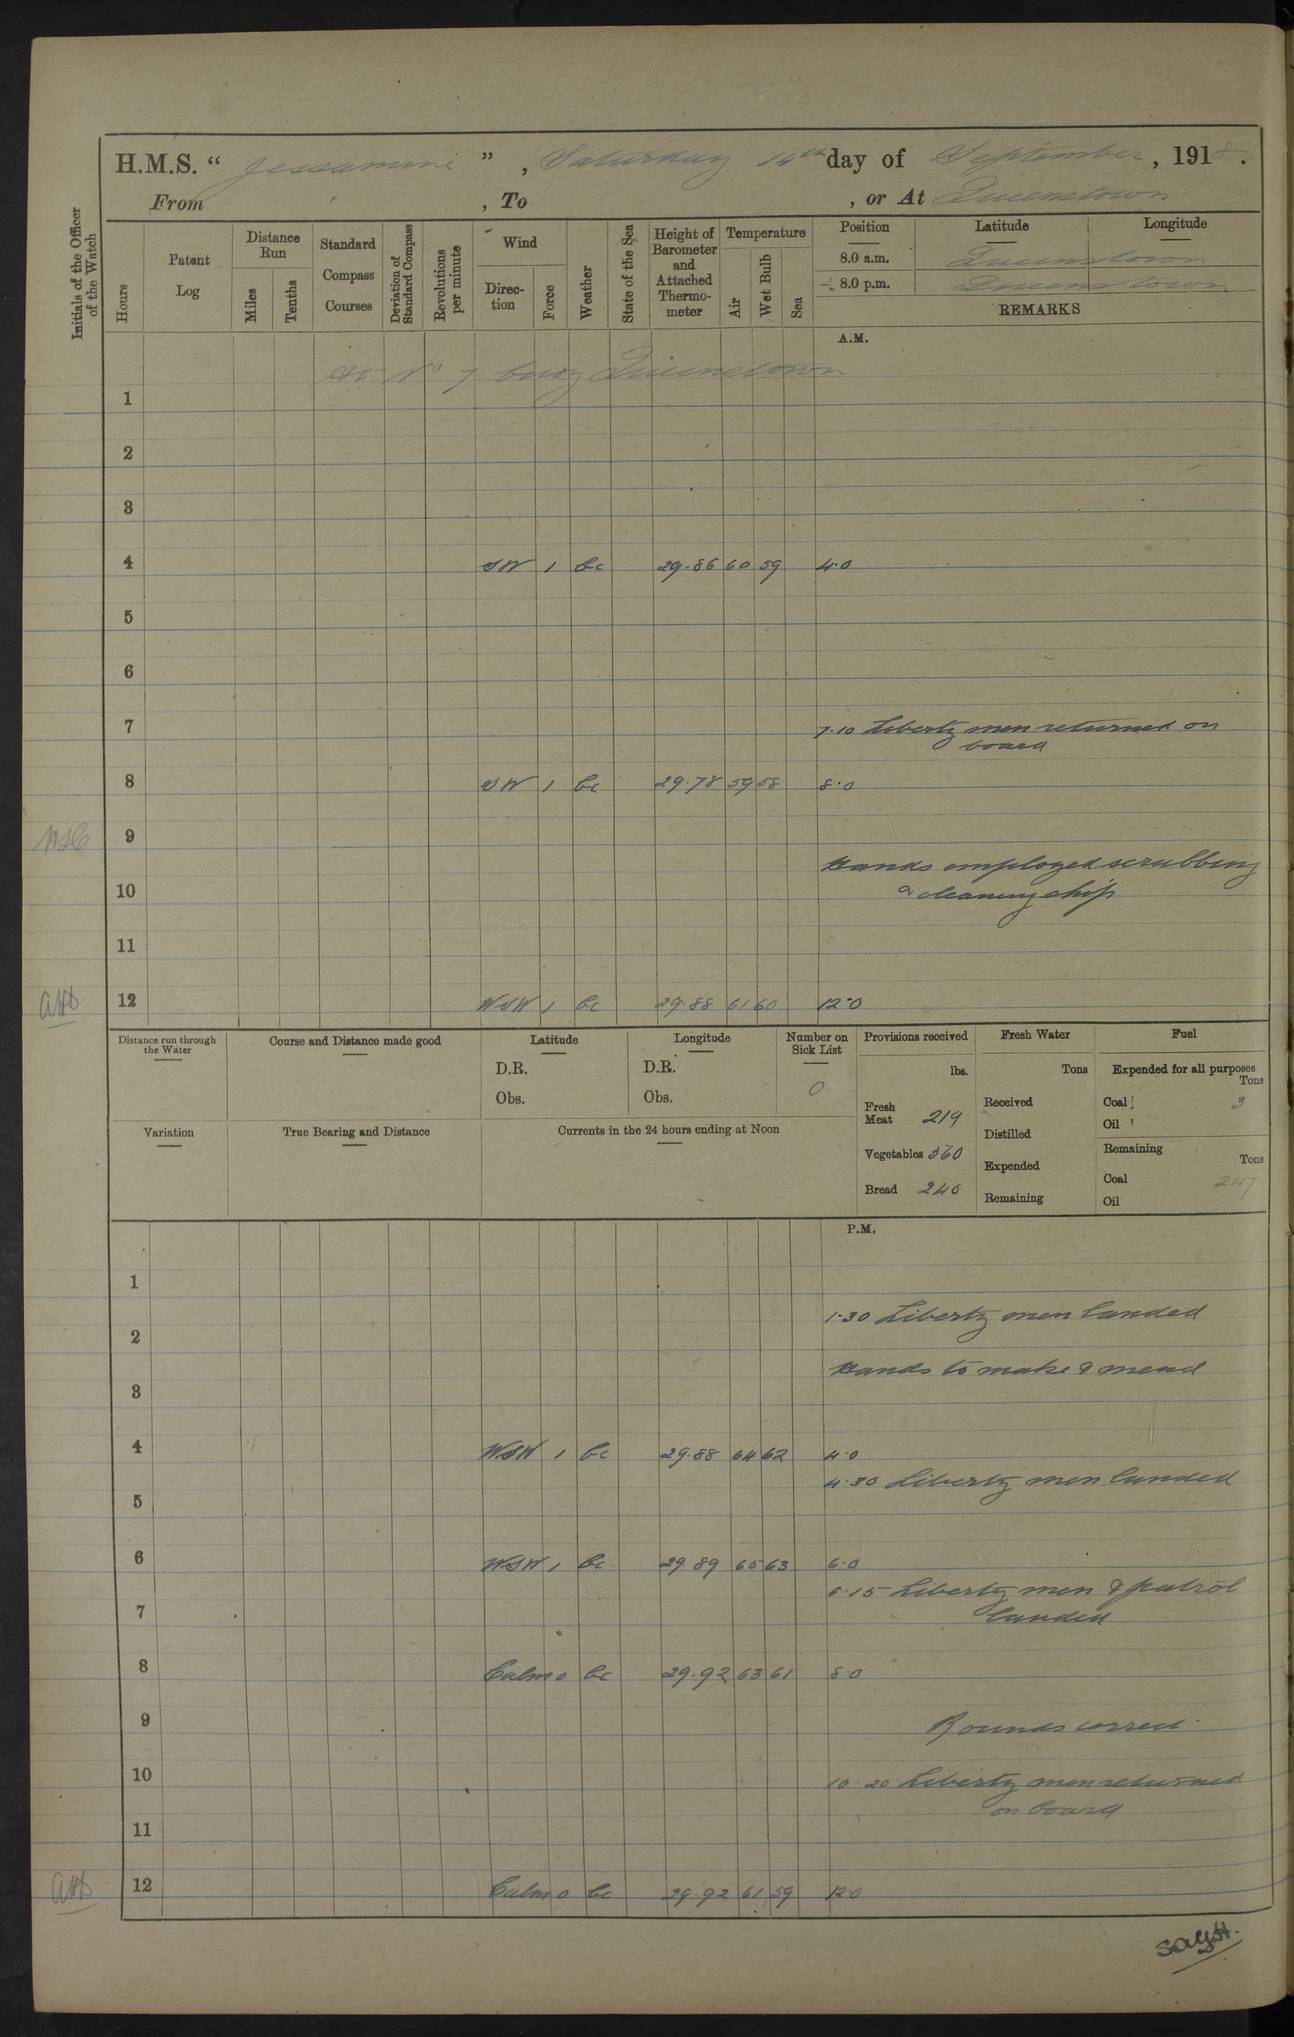 H.M.S. " Jessamine ", Saturday 14th day of September, 1918.
From , To , or At Queenstown
Initials of the Officer of the Watch
Hours
Patent Log
Distance Run
Miles
Tenths
Standard Compass Courses
Deviation of Standard Compass
Revolutions per minute
Wind
Direction
Force
Weather
State of the Sea
Height of Barometer and Attached Thermometer
Temperature
Air
Wet Bulb
Sea
Position Latitude Longitude
8.0 a.m. Queenstown
8.0 p.m. Queenstown
REMARKS
A.M.
At No 7 buoy Queenstown
1
2
3
4 SW 1 bc 29.86 60 59 4.0
5
6
7 7.10 Liberty men returned on
board
8 SW 1 bc 29.78 59 58 8.0
9
Hands employed scrubbing
10 & cleaning ship
11
12 WSW 1 bc 29.88 61 60 12.0
Distance run through the Water
Course and Distance made good
Latitude
D.R.
Obs.
Longitude
D.R.
Obs.
Number on Sick List
0
Variation
True Bearing and Distance
Currents in the 24 hours ending at Noon
Provisions received
lbs.
Fresh Meat 219
Vegetables 360
Bread 240
Fresh Water
Tons
Received
Distilled
Expended
Remaining
Fuel
Expended for all purposes
Tons
Coal 3
Oil
Remaining
Tons
Coal 247
Oil
P.M.
1
1.30 Liberty men landed
2
Hands to make & mend
3
4 WSW 1 bc 29.88 64 62 4.0
4.30 Liberty men landed
5
6 WSW 1 bc 29.89 65 63 6.0
6.15 Liberty men & patrol
7 landed
8 Calm 0 bc 29.92 63 61 8.0
9 Rounds correct
10 10.20 Liberty men returned
on board
11
12 Calm 0 bc 29.92 61 59 12.0